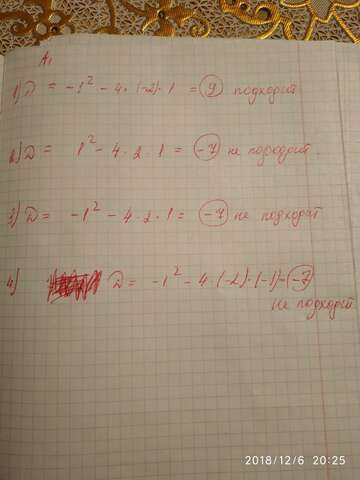 A1
1) D = -1² - 4 · (-2) · 1 = 9 подходит
2) D = 1² - 4 · 2 · 1 = -7 не подходит.
3) D = -1² - 4 · 2 · 1 = -7 не подходит
4) D = -1² - 4 · (-2) · (-1) = -7
не подходит
2018/12/6 20:25